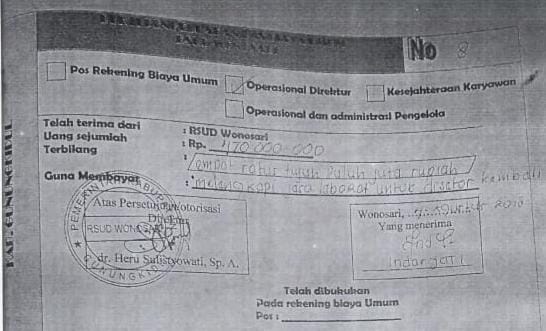 No 8
Pos Rekening Biaya Umum Operasional Direktur Kesejahteraan Karyawan
Operasional dan administrasi Pengelola
Telah terima dari : RSUD Wonosari
Uang sejumlah : Rp. 470 000 000
Terbilang : empat ratus tujuh puluh juta rupiah
Guna Membayar : melengkapi untuk kembali
Atas Persetujuan/otorisasi
Direktur
RSUD WONOSARI
dr. Heru Sulistyowati, Sp. A.
GUNUNGKIDUL
Wonosari,
Yang menerima
Indargati
Telah dibukukan
Pada rekening biaya Umum
Pos :